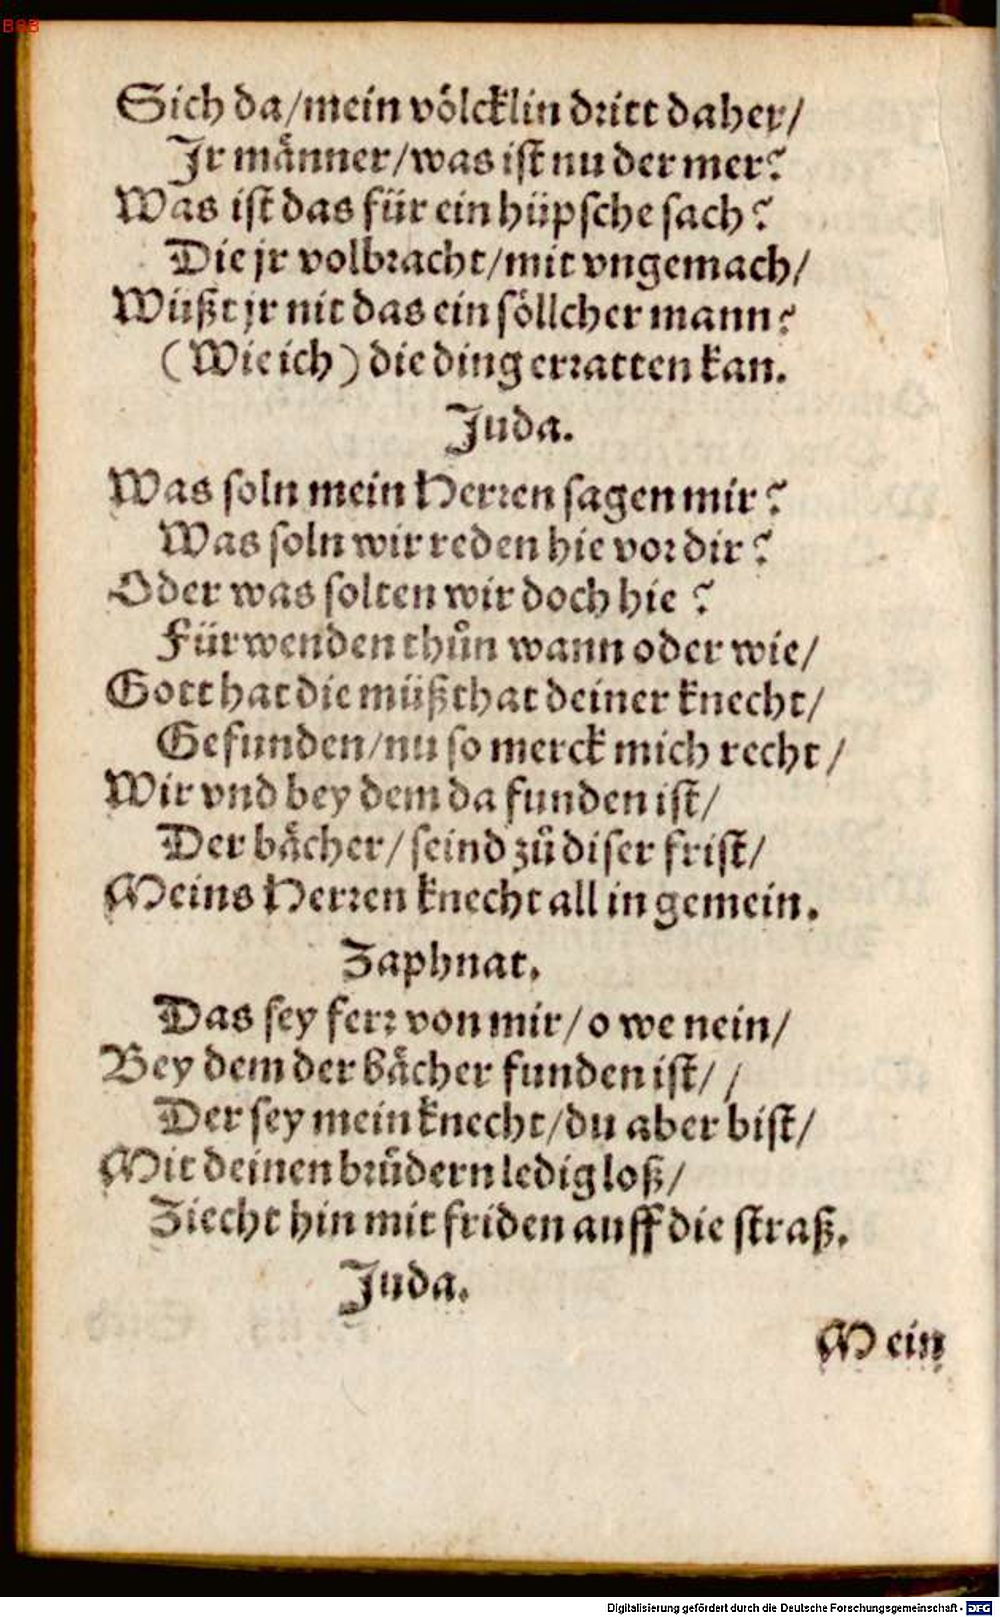 BSB
Sich da/mein völcklin dritt daher/
Jr männer/was ist nu der mer?
Was ist das für ein hüpsche sach?
Die jr volbracht/mit vngemach/
Wüßt jr nit das ein söllcher mann?
(Wie ich) die ding erratten kan.
Juda.
Was soln mein Herren sagen mir?
Was soln wir reden hie vor dir?
Oder was solten wir doch hie?
Fürwenden thůn wann oder wie/
Gott hat die müßthat deiner knecht/
Gefunden/nu so merck mich recht/
Wir vnd bey dem da funden ist/
Der bächer/seind zů diser frist/
Meins Herren knecht all in gemein.
Zaphnat.
Das sey ferr von mir/o we nein/
Bey dem der bächer funden ist//
Der sey mein knecht/du aber bist/
Mit deinen brůdern ledig loß/
Ziecht hin mit friden auff die straß.
Juda.
Mein
Digitalisierung gefördert durch die Deutsche Forschungsgemeinschaft - DFG